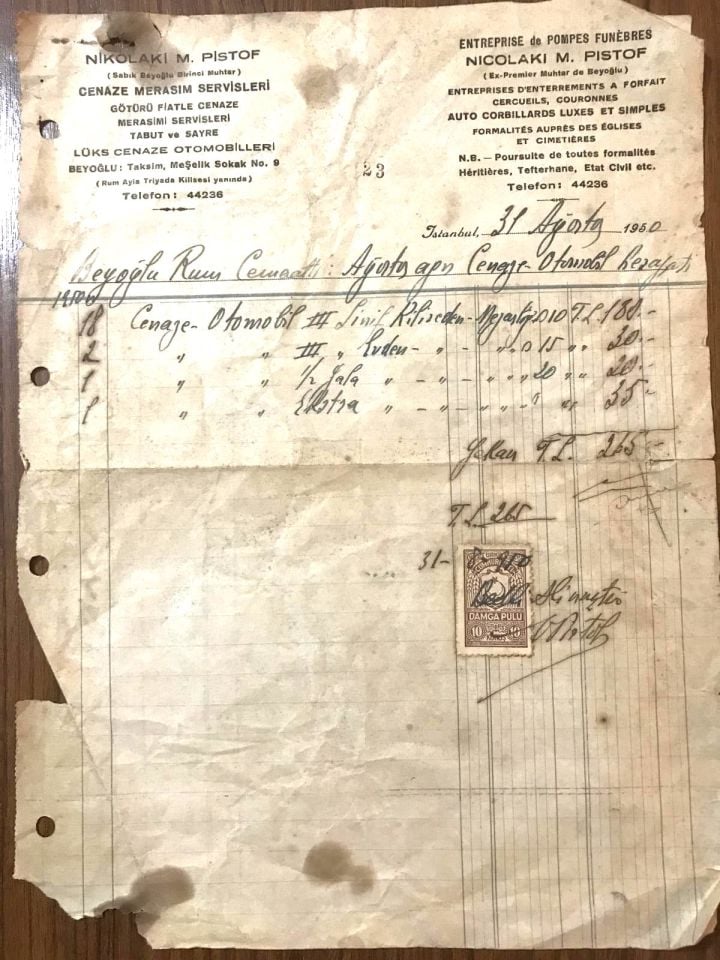 NİKOLAKİ M. PİSTOF
(Sabık Beyoğlu Birinci Muhtar)
CENAZE MERASIM SERVİSLERİ
GÖTÜRÜ FİATLE CENAZE
MERASİMİ SERVİSLERİ
TABUT ve SAYRE
LÜKS CENAZE OTOMOBİLLERİ
BEYOĞLU: Taksim, Meşelik Sokak No. 9
(Rum Ayia Triyada Kilisesi yanında)
Telefon: 44236
ENTREPRISE de POMPES FUNÈBRES
NICOLAKI M. PISTOF
(Ex-Premier Muhtar de Beyoğlu)
ENTREPRISES D'ENTERREMENTS A FORFAIT
CERCUEILS, COURONNES
AUTO CORBILLARDS LUXES ET SIMPLES
FORMALITÉS AUPRÈS DES ÉGLISES
ET CIMETIÈRES
N.B. — Poursuite de toutes formalités
Héritières, Tefterhane, Etat Civil etc.
Telefon: 44236
23
Istanbul, 31 Ağustos 1950
Beyoğlu Rum Cemaatı: Ağustos ayı Cenaze-Otomobil hesabı
18 Cenaze-Otomobil III Sınıf Kiliseden - Mezarlığa 10 T.L. 180.-
2 " " III " Evden - " " 15 " " 30.-
1 " " 1/2 Gala " - " " " 20 " " 20.-
1 " " Ekstra " - " " " " " 35.-
Yekun T.L. 265.-
T.L. 265
31-
DAMGA PULU
10 10